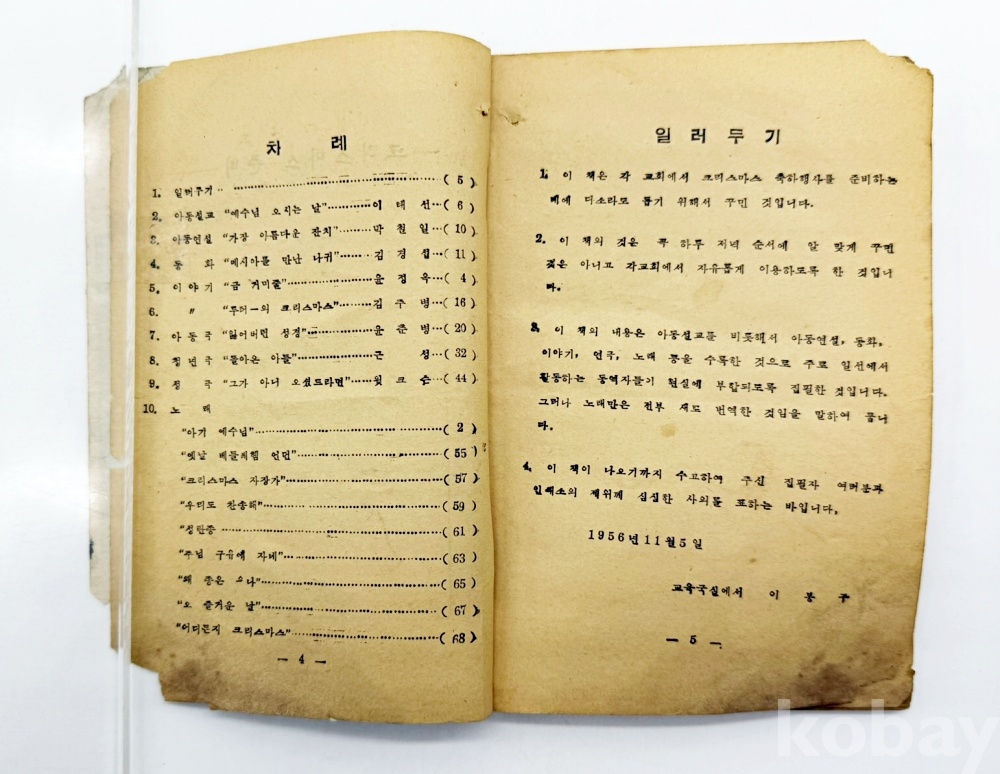 차 례
1. 일러두기 (5)
2. 아동설교 "예수님 오시는 날" 이태선 (6)
3. 아동연설 "가장 아름다운 잔치" 박천일 (10)
4. 동 화 "메시아를 만난 나귀" 김경섭 (11)
5. 이야기 "금 거미줄" 윤정옥 (4)
6. 〃 "루터-의 크리스마스" 김주병 (16)
7. 아동극 "잃어버린 성경" 윤춘병 (20)
8. 청년극 "돌아온 아들" 근 성 (32)
9. 성 극 "그가 아니 오셨드라면" 윗크슨 (44)
10. 노 래
"아기 예수님" (2)
"옛날 베들레헴 언덕" (55)
"크리스마스 자장가" (57)
"우리도 찬송해" (59)
"성탄종" (61)
"주님 구유에 자네" (63)
"왜 종은 우나" (65)
"오 즐거운 날" (67)
"어디든지 크리스마스" (68)
— 4 —
일러두기
1. 이 책은 각 교회에서 크리스마스 축하행사를 준비하는
데에 다소라도 돕기 위해서 꾸민 것입니다.
2. 이 책의 것은 꼭 하루 저녁 순서에 알 맞게 꾸민
것은 아니고 각교회에서 자유롭게 이용하도록 한 것입니
다.
3. 이 책의 내용은 아동설교를 비롯해서 아동연설, 동화,
이야기, 연극, 노래 등을 수록한 것으로 주로 일선에서
활동하는 동역자들기 현실에 부합되도록 집필한 것입니다.
그러나 노래만은 전부 새로 번역한 것임을 말하여 둡니
다.
4. 이 책이 나오기까지 수고하여 주신 집필자 여러분과
인쇄소의 제위께 심심한 사의를 표하는 바입니다.
1956년 11월 5일
교육국실에서 이 봉 구
— 5 —
kobay